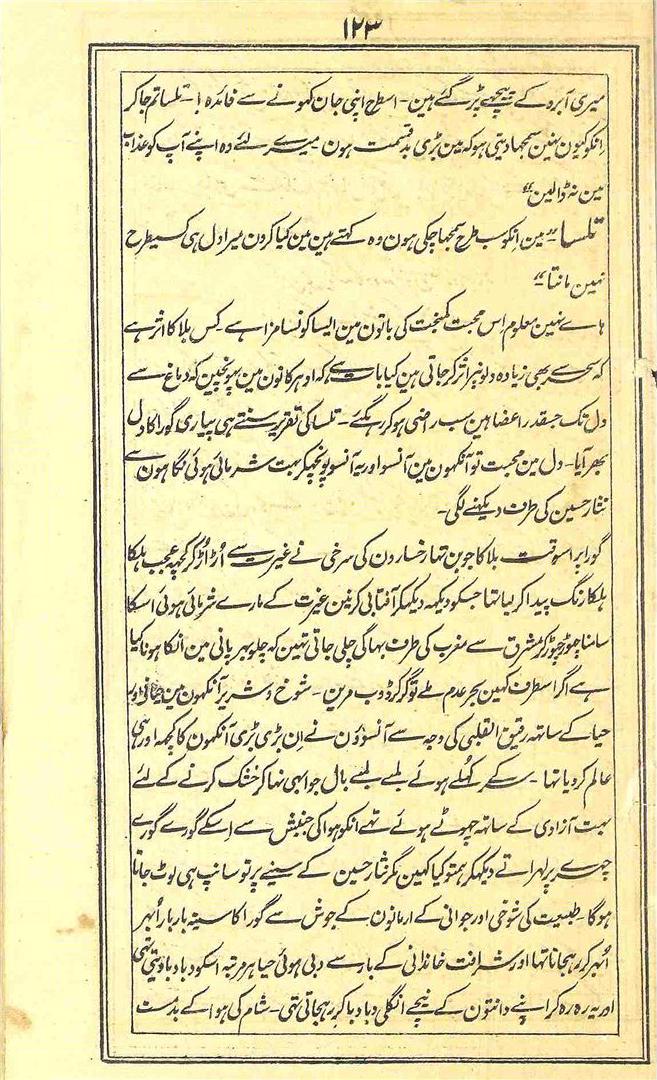 ۱۲۳
میری آبرو کے پیچھے پڑ گئے ہین۔ اسطرح اپنی جان کہونے سے فائدہ !۔ تلسا تم جا کر
انکو کیون نہین سمجہا دیتی ہو کہ مین بڑی بدقسمت ہون میرے لئے وہ اپنے آپ کو عذاب
مین نہ ڈالین“
تلسا۔ ”مین انکو سب طرح سمجہا چکی ہون وہ کہتے ہین مین کیا کرون میرا دل ہی کسیطرح
نہین مانتا“
ہاے نہین معلوم اس محبت کمبخت کی باتون مین ایسا کونسا مزا ہے۔ کس بلا کا اثر ہے
کہ سحر سے بھی زیادہ دلونپر اثر کر جاتی ہین کیا بات ہے کہ اودہر کانون مین پہونچین کہ دماغ سے
دل تک جسقدر اعضا ہین سب راضی ہو کر رہگئے۔ تلسا کی تقریر سنتے ہی پیاری گورا کا دل
بھر آیا۔ دل مین محبت تو آنکہون مین آنسو اور یہ آنسو پونچہکر بہت شرمائی ہوئی نگاہون سے
نثار حسین کی طرف دیکہنے لگی۔
گورا پر اسوقت بلا کا جوبن تہا رخسارون کی سرخی نے غیرت سے اُڑ اُڑ کر کچہہ عجب ہلکا
ہلکا رنگ پیدا کر لیا تہا جسکو دیکہہ دیکہکر آفتابی کرنین غیرت کے مارے شرمائی ہوئی اسکا
سامنا چہوڑ چہوڑ کر مشرق سے مغرب کی طرف بہاگی چلی جاتی تہین کہ چلو مہربانی مین انکا ہونا کیا
ہے اگر اسطرف کہین بحر عدم ملے تو گر کر ڈوب مرین۔ شوخ و شریر آنکہون مین
حیا کے ساتہہ رقیق القلبی کی وجہ سے آنسوؤن نے اِن بڑی بڑی آنکہون کا کچہہ اور ہی
عالم کر دیا تہا۔ سر کے کہلے ہوئے لمبے لمبے بال جو ابہی نہا کر خشک کرنے کے لئے
بہت آزادی کے ساتہہ چہوٹے ہوئے تہے انکو ہوا کی جنبش سے اسکے گورے گورے
چہرے پر لہراتے دیکہکر ہم تو کیا کہین مگر نثار حسین کے سینے پر تو سانپ ہی لوٹ جاتا
ہوگا۔ طبیعت کی شوخی اور جوانی کے ارمانون کے جوش سے گورا کا سینہ بار بار اُبہر
اُبہر کر رہجاتا تہا اور شرافت خاندانی کے بار سے دبی ہوئی حیا ہر مرتبہ اسکو دبا دبا دیتی تہی
اور یہ رہ رہ کر اپنے دانتون کے نیچے انگلی دبا دبا کر رہجاتی تہی۔ شام کی ہوا کے بدمست